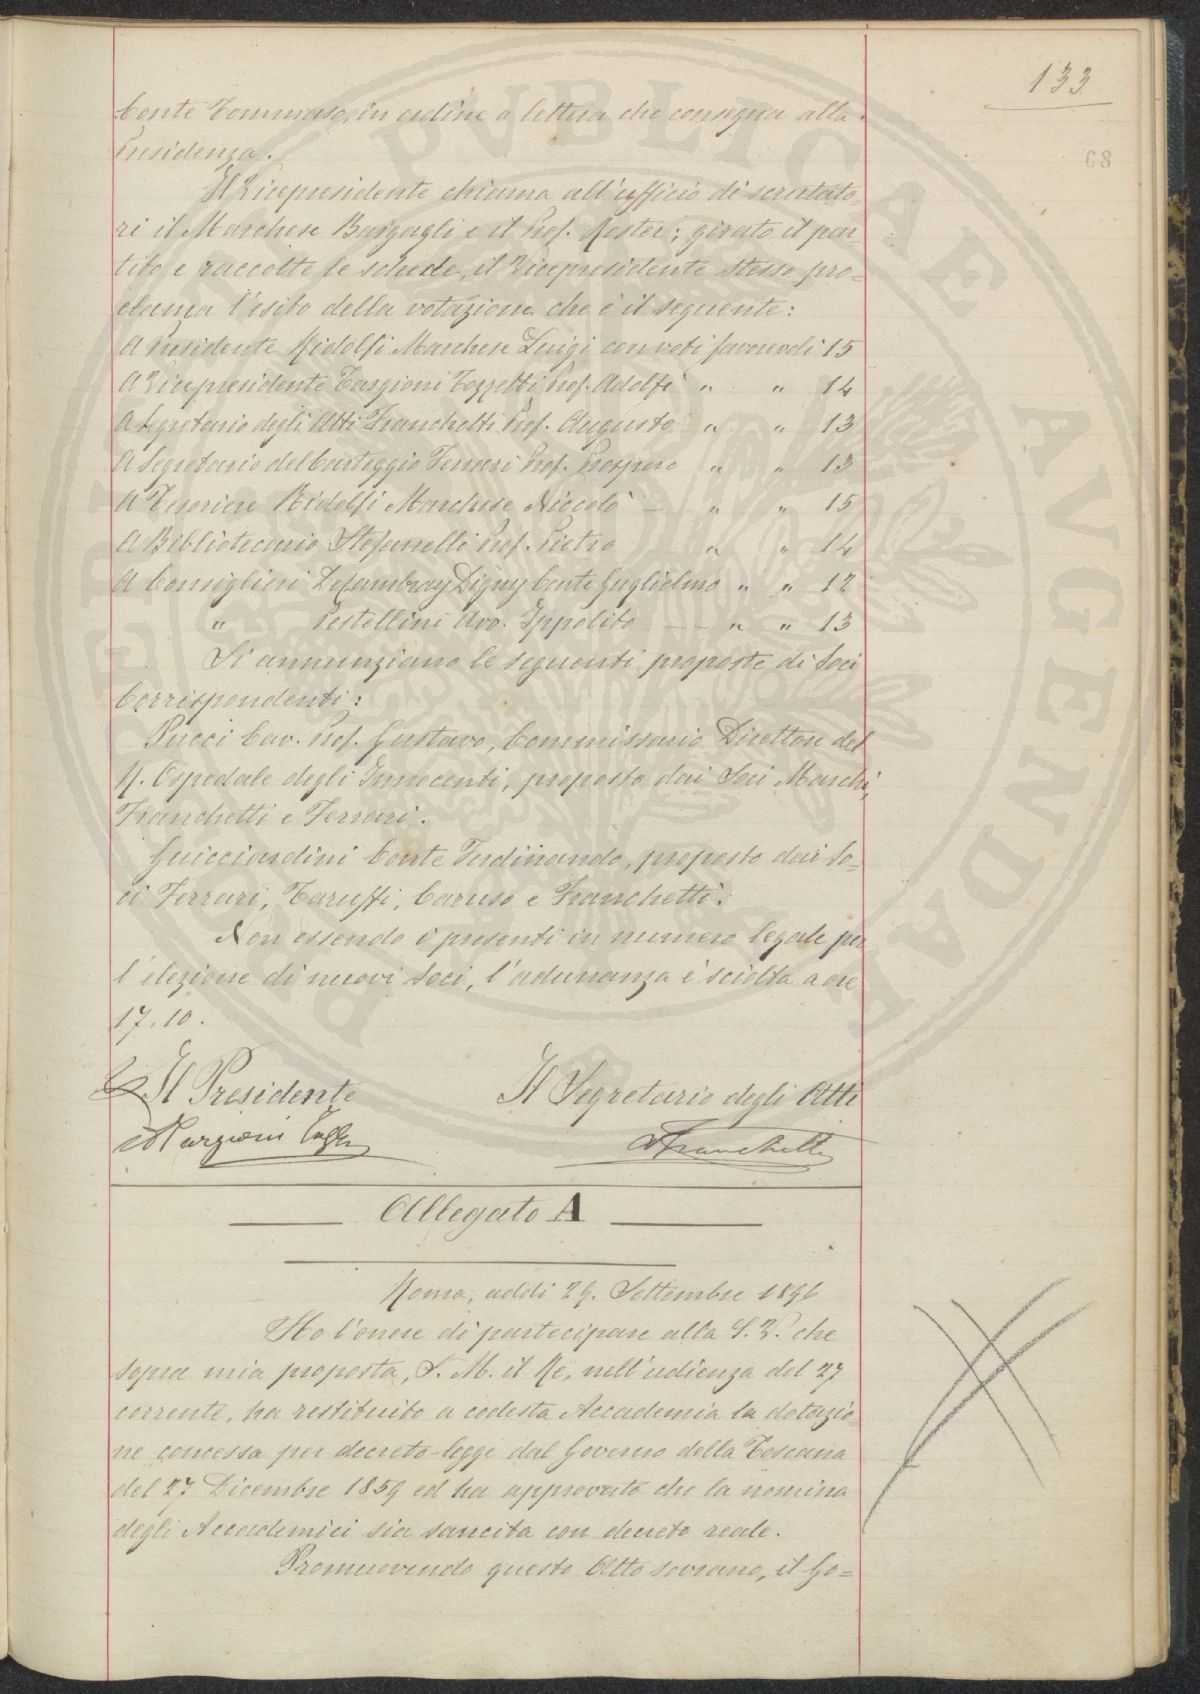 133
68
Conte Tommaso, in ordine a lettera che consegna alla
Presidenza.
Il Vicepresidente chiama all'ufficio di scrutato=
ri il Marchese Bargagli e il Prof. Roster; girato il par=
tito e raccolte le schede, il Vicepresidente stesso pro=
clama l'esito della votazione che è il seguente:
A Presidente Ridolfi Marchese Luigi con voti favorevoli 15
A Vicepresidente Targioni Tozzetti Prof. Adolfo " " 14
A Segretario degli Atti Franchetti Prof. Augusto " " 13
A Segretario del Carteggio Ferrari Prof. Prospero " " 13
A Tesoriere Ridolfi Marchese Niccolò — " " 15
A Bibliotecario Stefanelli Prof. Pietro " " 14
A Consiglieri De Cambray Digny Conte Guglielmo " " 12
" Pestellini Avv. Ippolito — " " 13
Si annunziano le seguenti proposte di Soci
Corrispondenti:
Pucci Cav. Prof. Gustavo, Commissario Direttore del
R. Ospedale degli Innocenti, proposto dai Soci Marchi,
Franchetti e Ferrari.
Guicciardini Conte Ferdinando, proposto dai So=
ci Ferrari, Taruffi, Caruso e Franchetti.
Non essendo i presenti in numero legale per
l'elezione di nuovi Soci, l'adunanza è sciolta a ore
17.10.
Il Presidente Il Segretario degli Atti
Targioni Tozz AFranchetti
Allegato A
Roma, addì 29. Settembre 1896
Ho l'onore di partecipare alla S.V. che
sopra mia proposta, S. M. il Re, nell'udienza del 27
corrente, ha restituito a codesta Accademia la dotazio=
ne concessa per decreto-legge dal Governo della Toscana
del 27. Dicembre 1859 ed ha approvato che la nomina
degli Accademici sia sancita con decreto reale.
Promuovendo questo Atto sovrano, il Go=
PVBLICAE AVGENDAE